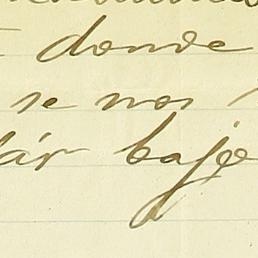 donde
se nos
dár bajo